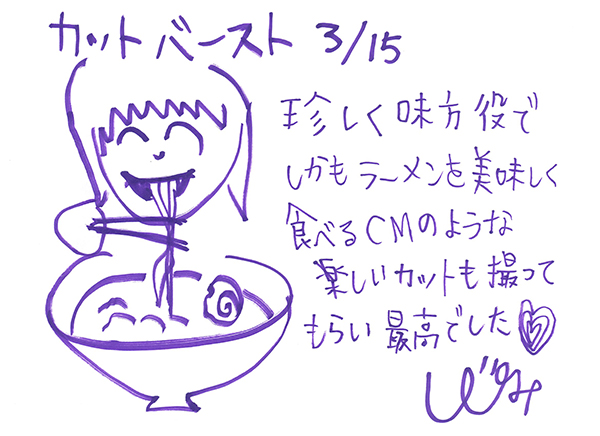 カットバースト 3/15
珍しく味方役で
しかもラーメンを美味しく
食べるCMのような
楽しいカットも撮って
もらい最高でした